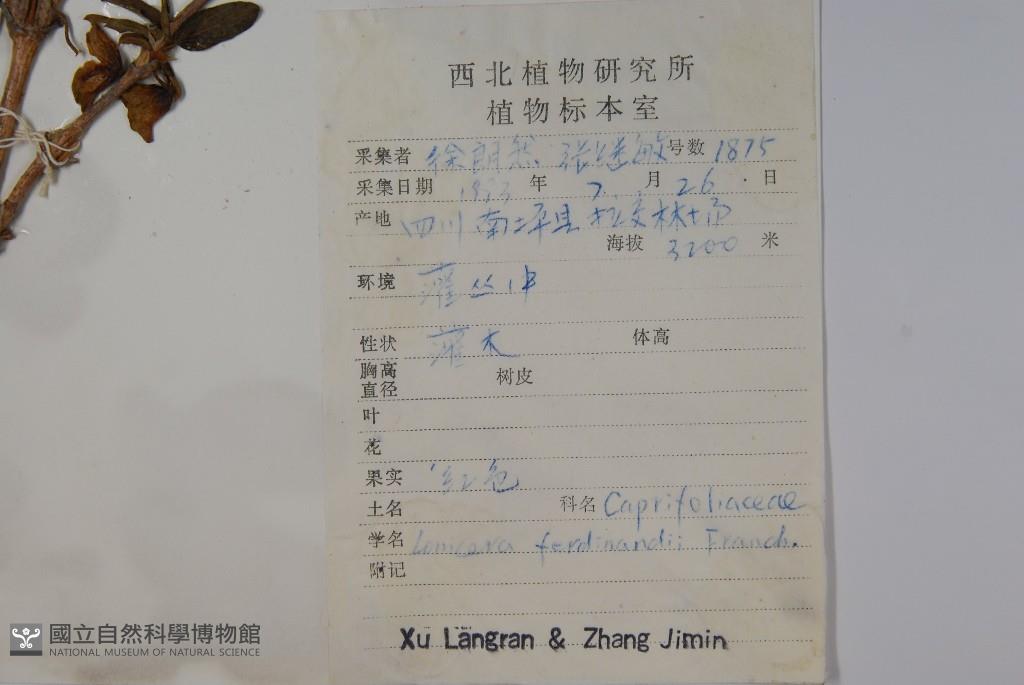 西北植物研究所
植物标本室
采集者 徐朗然 张继敏 号数 1875
采集日期 年 7 月 26 日
产地 四川南坪县 林场
海拔 3200 米
环境 灌丛中
性状 灌木 体高
胸高直径 树皮
叶
花
果实 红色
土名 科名 Caprifoliaceae
学名 Lonicera ferdinandii Franch.
附记
Xu Langran & Zhang Jimin
國立自然科學博物館
NATIONAL MUSEUM OF NATURAL SCIENCE